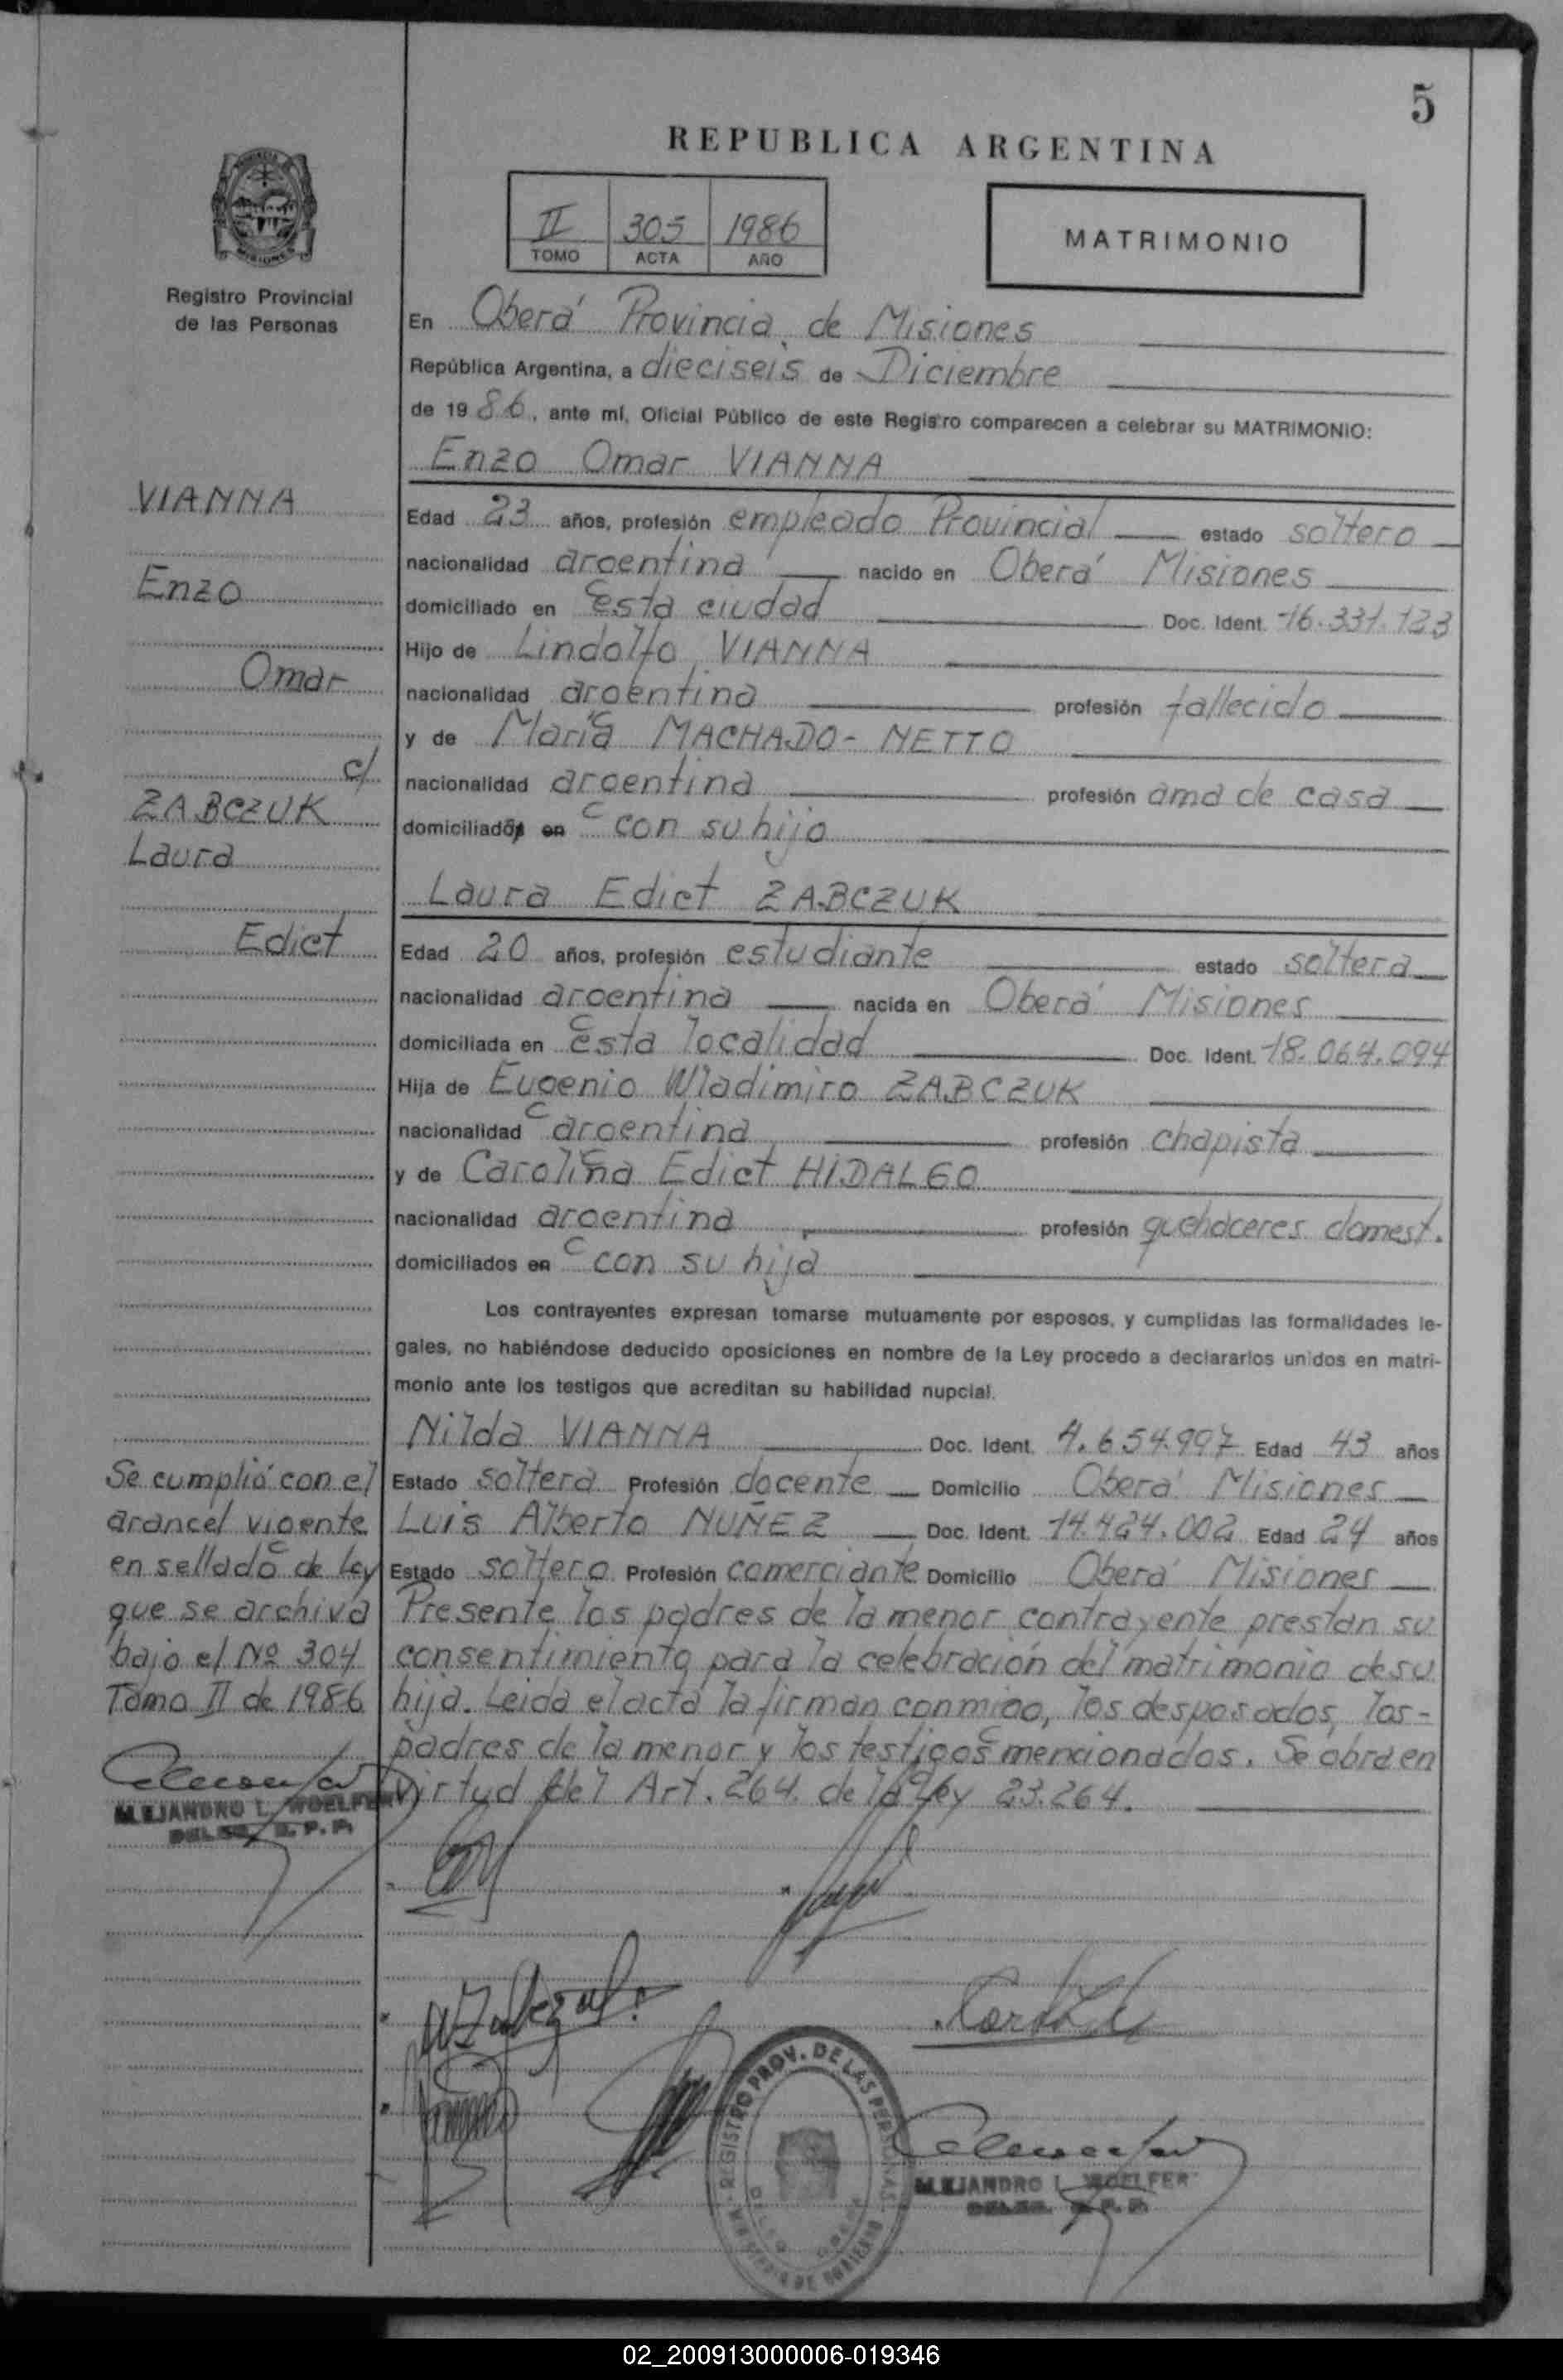 5
REPUBLICA ARGENTINA
II 305 1986
TOMO ACTA AÑO
MATRIMONIO
Registro Provincial
de las Personas
En Oberá Provincia de Misiones
República Argentina, a dieciseis de Diciembre
de 1986, ante mí, Oficial Público de este Registro comparecen a celebrar su MATRIMONIO:
Enzo Omar VIANNA
Edad 23 años, profesión empleado Provincial estado soltero
nacionalidad argentina nacido en Oberá Misiones
domiciliado en Esta ciudad Doc. Ident. 16.331.123
Hijo de Lindolfo VIANNA
nacionalidad argentina profesión fallecido
y de María MACHADO-NETTO
nacionalidad argentina profesión ama de casa
domiciliados en con su hijo
Laura Edict ZABCZUK
Edad 20 años, profesión estudiante estado soltera
nacionalidad argentina nacida en Oberá Misiones
domiciliada en Esta localidad Doc. Ident. 18.064.094
Hija de Eugenio Wladimiro ZABCZUK
nacionalidad argentina profesión chapista
y de Carolina Edict HIDALGO
nacionalidad argentina profesión quehaceres domest.
domiciliados en con su hija
Los contrayentes expresan tomarse mutuamente por esposos, y cumplidas las formalidades le-
gales, no habiéndose deducido oposiciones en nombre de la Ley procedo a declararlos unidos en matri-
monio ante los testigos que acreditan su habilidad nupcial.
Nilda VIANNA Doc. Ident. 4.654.997 Edad 43 años
Estado soltera Profesión docente Domicilio Oberá Misiones
Luis Alberto NUÑEZ Doc. Ident. 14.424.002 Edad 24 años
Estado soltero Profesión comerciante Domicilio Oberá Misiones
Presente los padres de la menor contrayente prestan su
consentimiento para la celebración del matrimonio de su
hija. Leida el acta la firman conmigo, los desposados, los-
padres de la menor y los testigos mencionados. Se obra en
virtud del Art. 264. de la Ley 23.264.
VIANNA
Enzo
Omar
c/
ZABCZUK
Laura
Edict
Se cumplió con el
arancel vigente
en sellado de ley
que se archiva
bajo el Nº 304
Tomo II de 1986
ALEJANDRO L. WOELFER
REGISTRO PROV. DE LAS PERSONAS
ALEJANDRO L. WOELFER
02_200913000006-019346